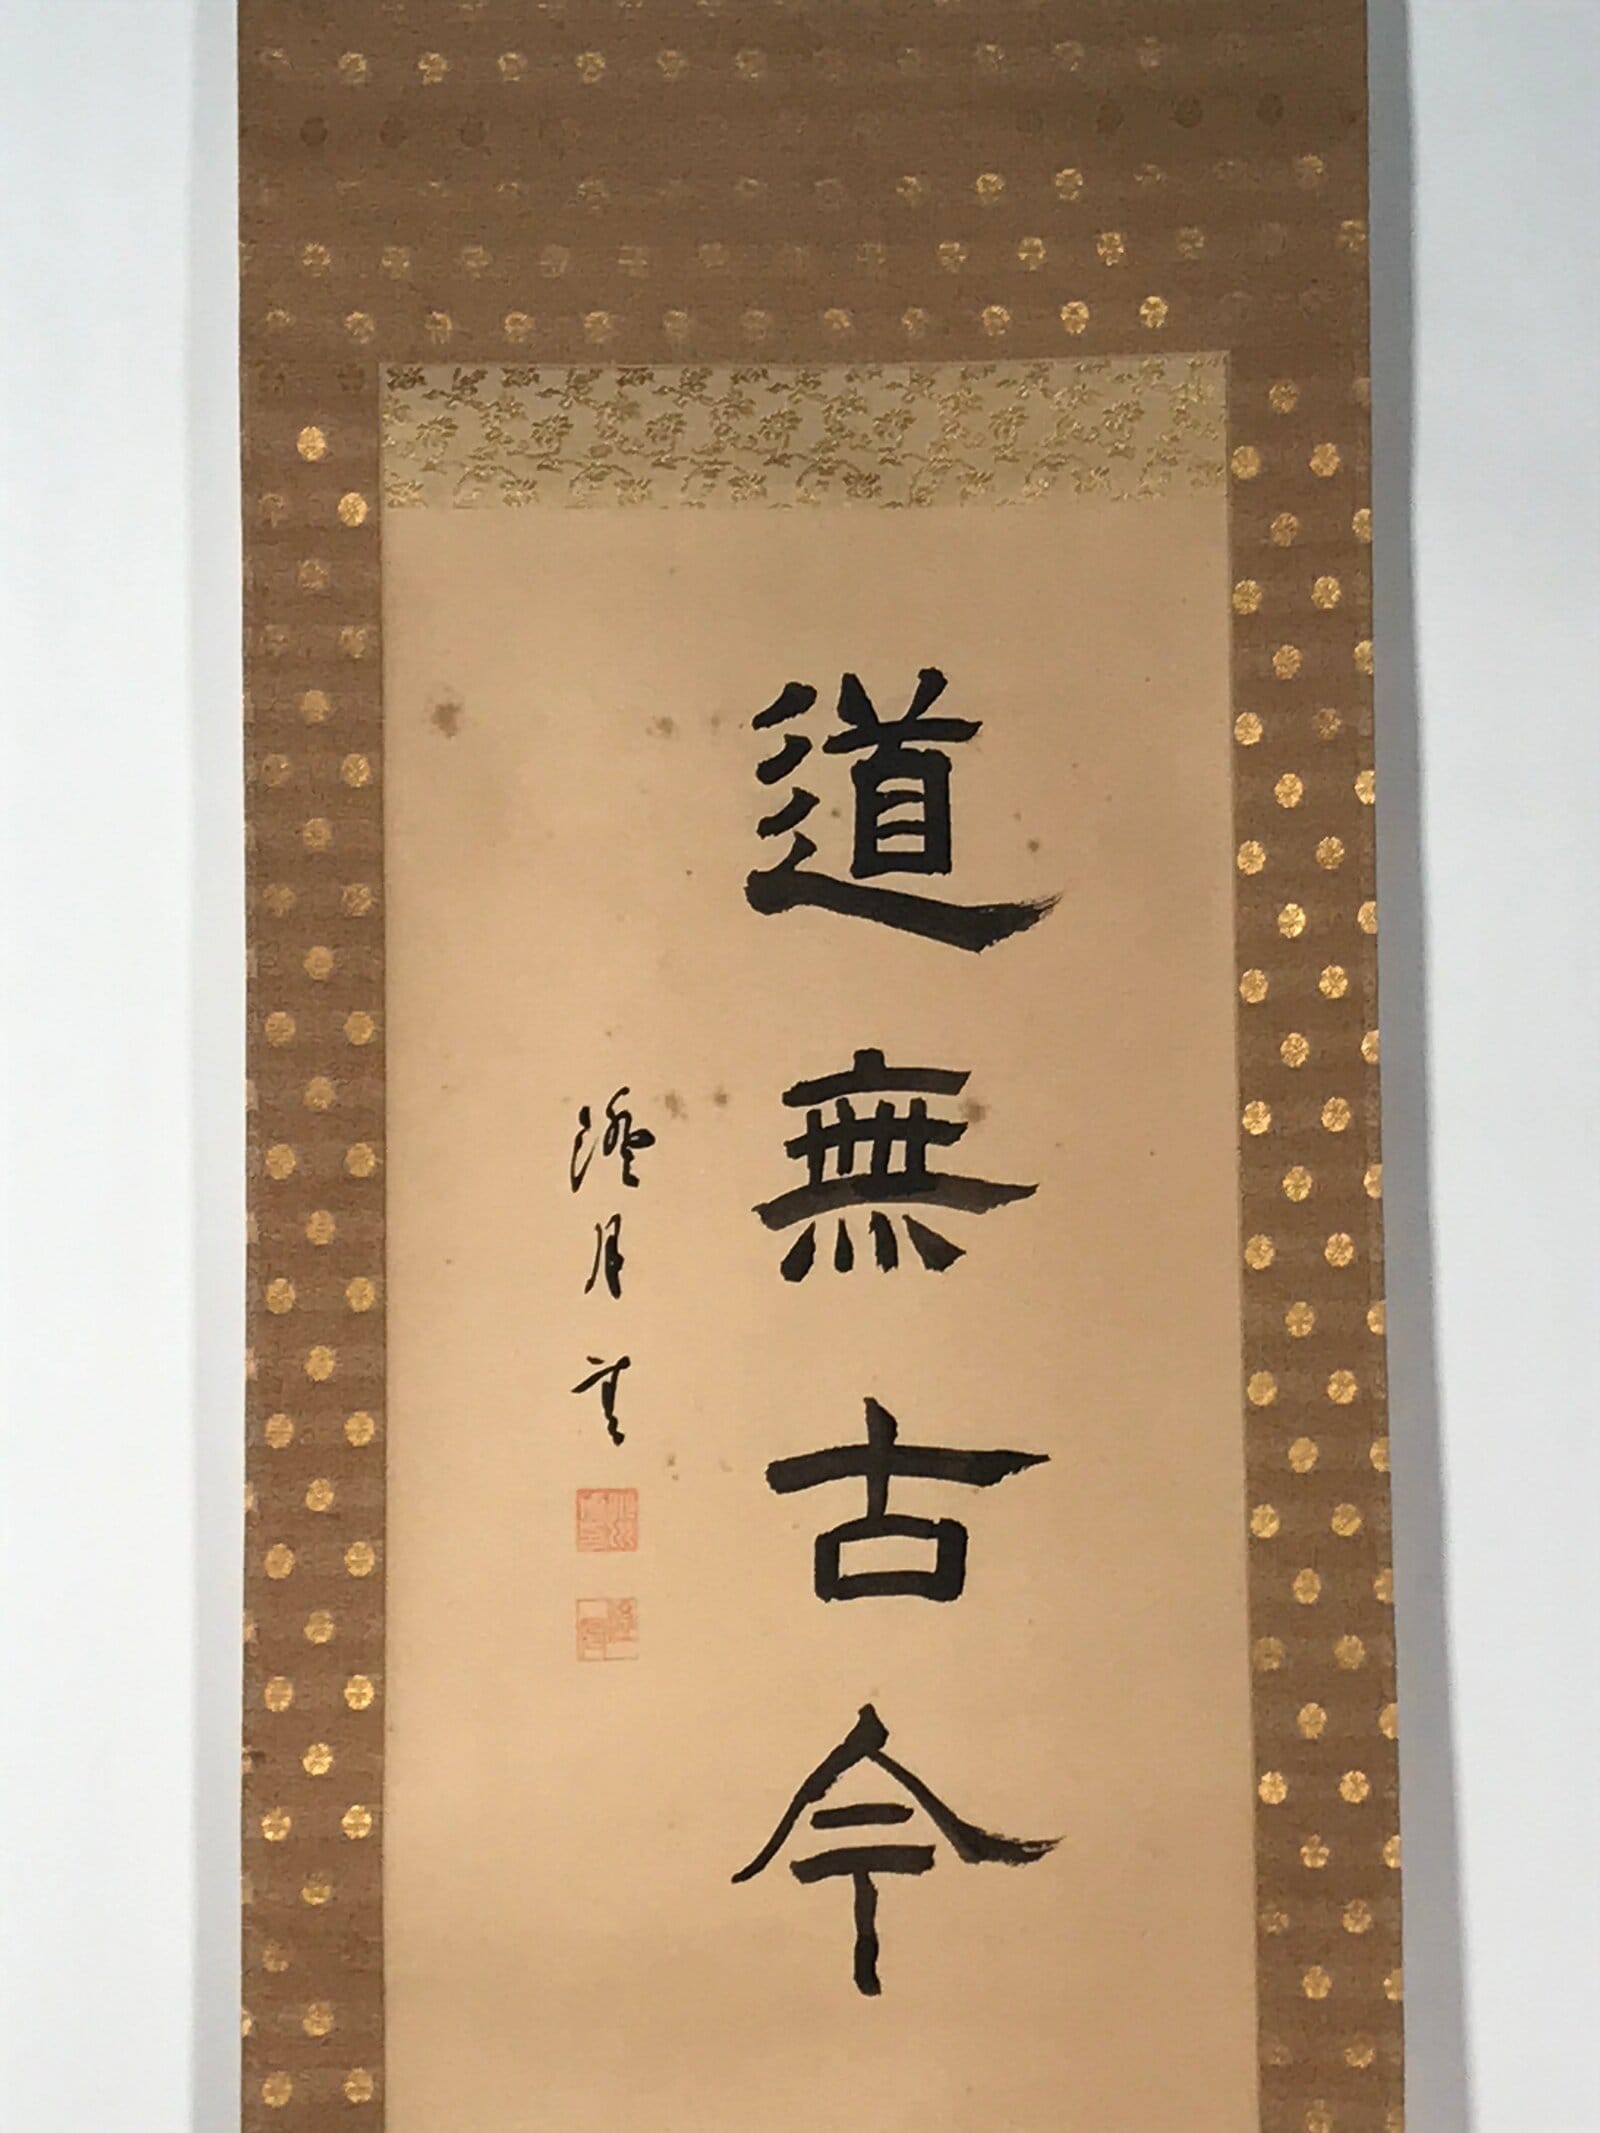 道無古今
澄月書